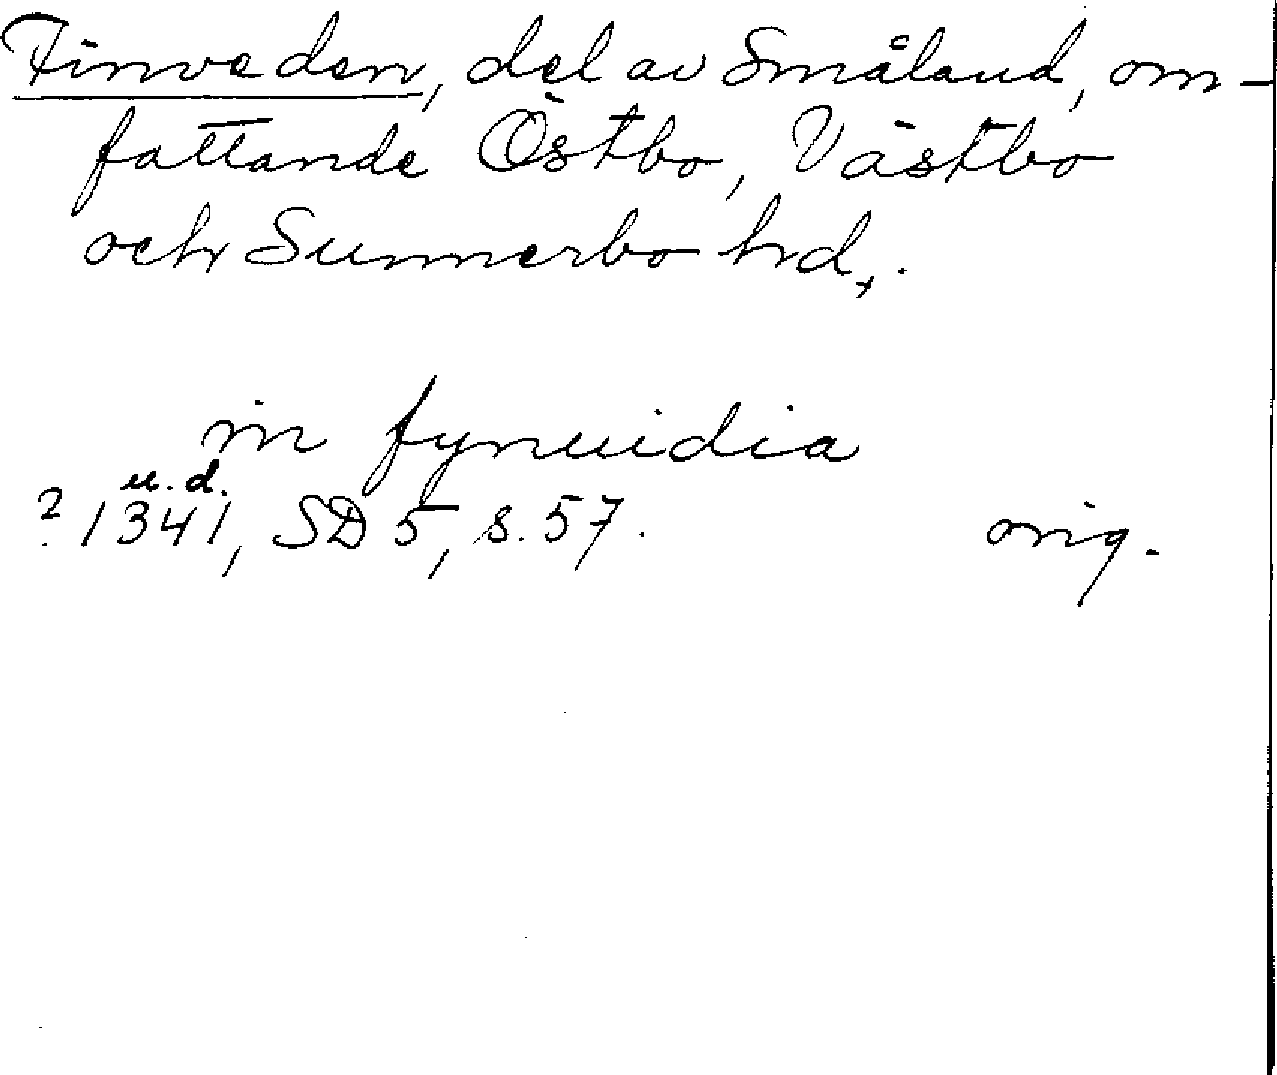 Finveden, del av Småland, om-
fattande Östbo, Västbo
och Sunnerbo hrd.
in fynuidia
u.d.
? 1341, SD 5, s. 57. orig.